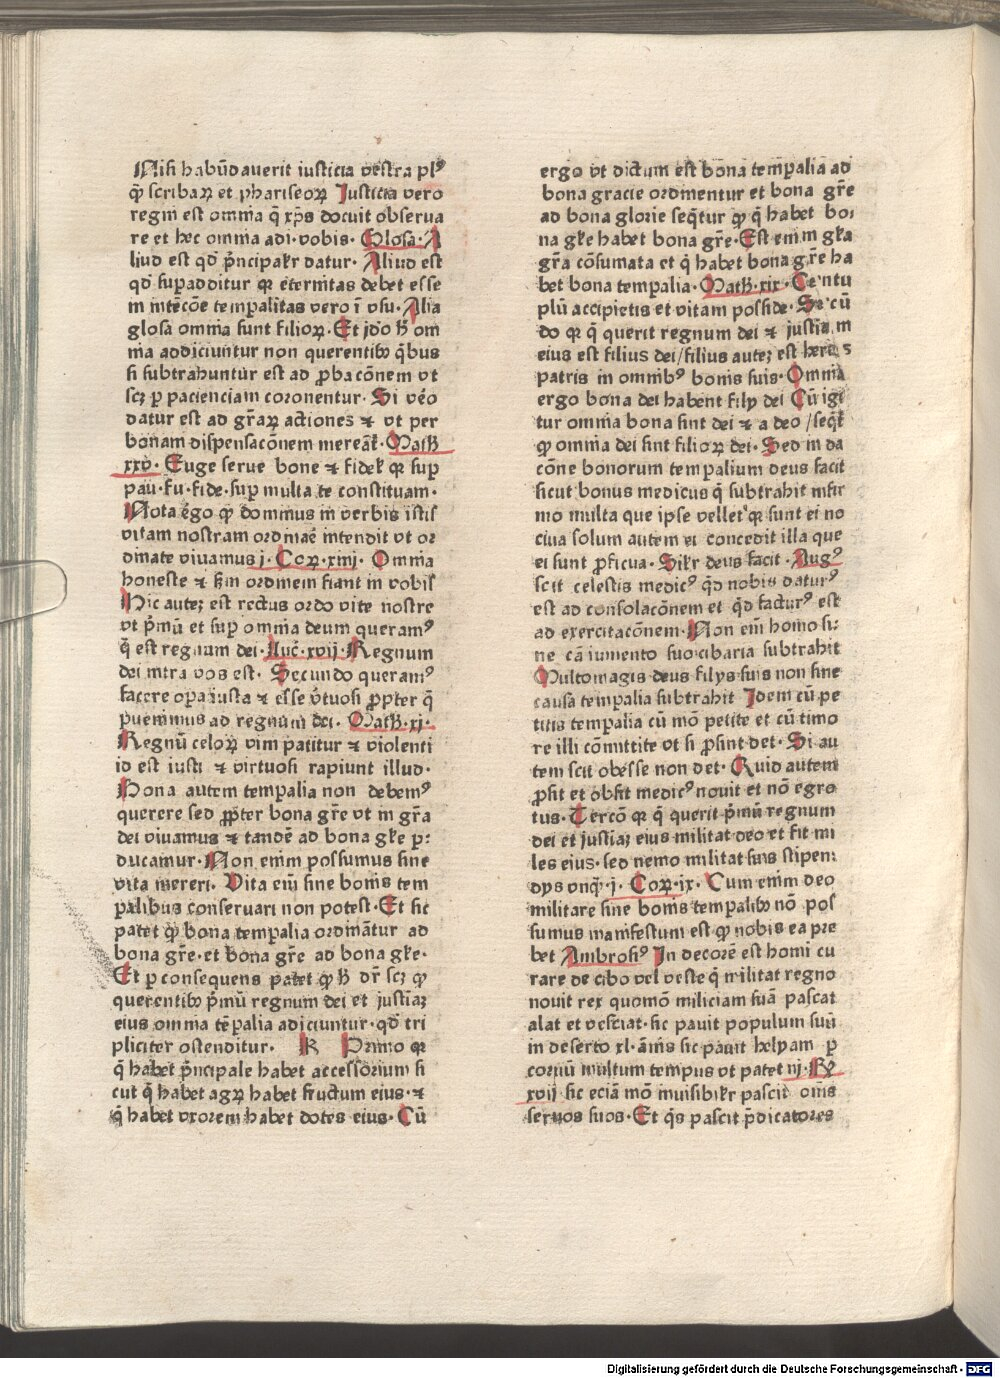 Nisi habūdauerit iusticia vestra plꝰ
q̄ꝫ scribaꝝ et phariseoꝝ Iusticia vero
regni est omnia q̄ xp̄s docuit obserua
re et hec omnia adi·vobis· Glosa· A
liud est qd̓ p̄ncipalr̄ datur· Aliud est
qd̓ suꝑadditur qꝛ eternitas debet esse
in intēcōe temꝑalitas vero ī vsu· Alia
glosa omnia sunt filioꝝ· Et iōo h̄ om
nia adiiciuntur non querentibꝰ q̄bus
si subtrahuntur est ad ꝓbacōnem vt
scꝫ ꝑ pacienciam coronentur· Si v̄o
datur est ad gr̄aꝝ actiones ⁊ vt per
bonam dispensacōnem mereāt̄· Math̄
xxv· Euge serue bone ⁊ fidel̄ qꝛ suꝑ
pau·fu·fide·suꝑ multa te constituam·
Nota ēgo ꝙ dominus in verbis istis
vitam nostram ordinaē intendit vt or
dinate viuamus j· Coꝝ·xiiij· Omnia
honeste ⁊ ẜm ordinem fiant in vobis
Hic auteꝫ est rectus ordo vite nostre
vt p̄mū et suꝑ omnia deum queramꝰ
q̄ est regnum dei· Luc̄·xvij· Regnum
dei intra vos est· Secundo queramꝰ
facere opa iusta ⁊ esse v̄tuosi ꝓpter q̄
ꝑuenimus ad regnum dei· Math̄·xj·
Regnū celoꝝ vim patitur ⁊ violenti
id est iusti ⁊ virtuosi rapiunt illud·
Bona autem temꝑalia non debemꝰ
querere sed ꝓpter bona gr̄e vt in gr̄a
dei viuamus ⁊ tandē ad bona gl̄e ꝑ:
ducamur· Non enim possumus sine
vita mereri· Vita eiī sine bonis tem
ꝑalibus conseruari non potest· Et sic
patet ꝙ bona temꝑalia ordināntur ad
bona gr̄e·et bona gr̄e ad bona gl̄e·
Et ꝑ consequens patet ꝙ h̄ dr̄ scꝫ ꝙ
querentibꝰ p̄mū regnum dei et iustiaꝫ
eius omnia tēꝑalia adiiciuntur·qd̓ tri
pliciter ostenditur· R Primo qꝛ
q̄ habet p̄ncipale habet accessorium si
cut q̄ habet agrꝫ habet fructum eius·⁊
q̄ habet vxorem habet dotes eius· Cū
ergo vt dictum est bona temꝑalia ad
bona gracie ordinentur et bona gr̄e
ad bona glorie seq̄tur ꝙ q̄ habet bo:
na gl̄e habet bona gr̄e· Est enim gl̄a
gr̄a cōsumata et q̄ habet bona gr̄e ha
bet bona temꝑalia· Math̄·xix· Centu
plū accipietis et vitam posside· Secū
do qꝛ q̄ querit regnum dei ⁊ iustiam
eius est filius dei/filius auteꝫ est heres
patris in omnibꝰ bonis suis· Omnia
ergo bona dei habent filij dei Cū igi
tur omnia bona sint dei ⁊ a deo/seq̄t̄
ꝙ omnia dei sint filioꝝ dei· Sed in da
cōne bonorum temꝑalium deus facit
sicut bonus medicus q̄ subtrahit infir
mo multa que ipse vellet qꝛ sunt ei no
ciua solum autem ei concedit illa que
ei sunt ꝓficua· Silr̄ deus facit· Augꝰ
scit celestis medicꝰ q̄d nobis daturꝰ
est ad consolacōnem et q̄d facturꝰ est
ad exercitacōnem· Non eiī homo si:
ne cā iumento suo cibaria subtrahit
Multomagis deus filijs suis non sine
causa temꝑalia subtrahit Idem cū pe
titis temꝑalia cū mō petite et cū timo
re illi cōmittite vt si ꝓsint det· Si au
tem scit obesse non det· Quid autem
ꝓsit et obsit medicꝰ nouit et nō egro
tus· Tercō qꝛ q̄ querit p̄mū regnum
dei et iustiaꝫ eius militat deo et fit mi
les eius·sed nemo militat suis stipen:
dijs vnq̄ꝫ·j· Coꝝ·ix· Cum enim deo
militare sine bonis temꝑalibꝰ nō pos
sumus manifestum est ꝙ nobis ea pre
bet Ambrosiꝰ In decorē est homi cu
rare de cibo vel veste q̄ militat regno
nouit rex quomō miliciam suā pascat
alat et vesciat·sic pauit populum suū
in deserto xl·ānis sic pauit helyam ꝑ
coruū multum tempus vt patet iij·Rꝫ
xvij·sic eciā mō inuisibilr̄ pascit oīns
seruos suos· Et q̄s pascit p̄dicatores
Digitalisierung gefördert durch die Deutsche Forschungsgemeinschaft - DFG